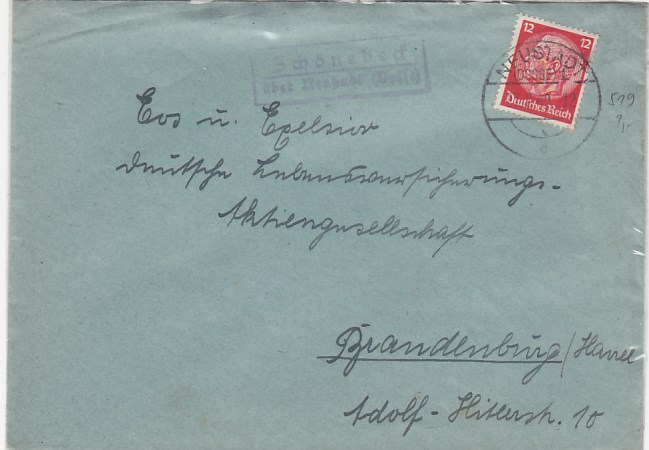 Schönebeck
über Neustadt (Dosse)
12 12
Deutsches Reich
NEUSTADT
(DOSSE)
519
7,-
Eos u. Exelsior
deutsche Lebensversicherungs-
Aktiengesellschaft
Brandenburg/Havel
Adolf-Hitlerstr. 10